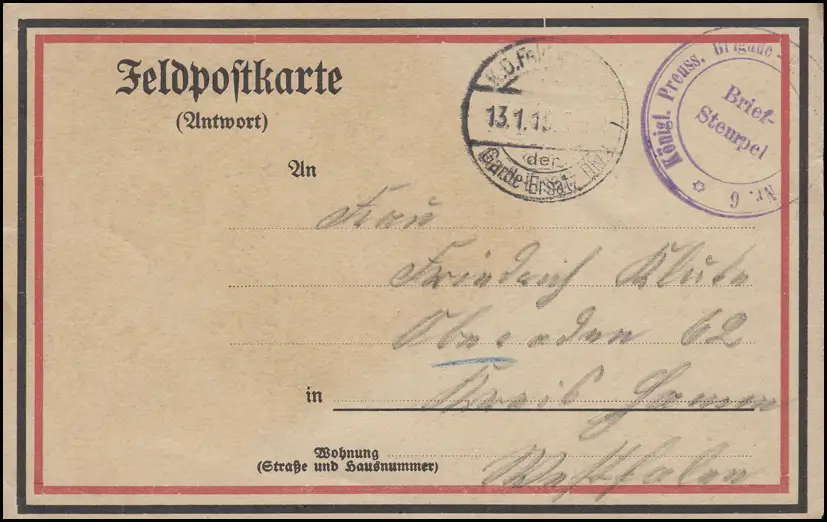 Feldpostkarte
(Antwort)
K.D.Fel
13.1.15
der
Garde-Ersatz Div.
Königl. Preuss. Brigade
Brief-
Stempel
Nr. 6
An
Frau
Friedrich Klute
Oberaden 62
in Kreis Hamm
Wohnung
(Straße und Hausnummer)
Westfalen